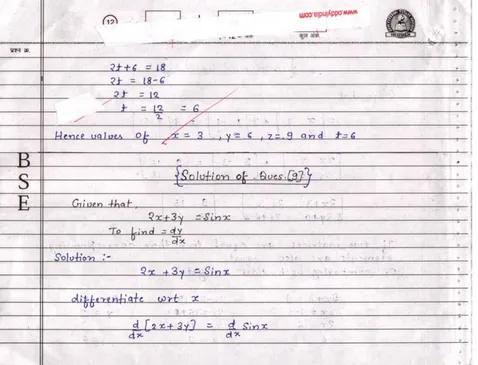 12
www.oddyindia.com
प्रश्न क्र.
2t+6 = 18
2t = 18-6
2t = 12
t = 12/2 = 6
Hence values of x = 3 , y = 6 , z = 9 and t=6
BSE
{Solution of Ques.[9]}
Given that,
2x+3y = Sinx
To find = dy/dx
Solution :-
2x + 3y = Sinx
differentiate wrt x
d/dx [2x+ 3y] = d/dx Sinx